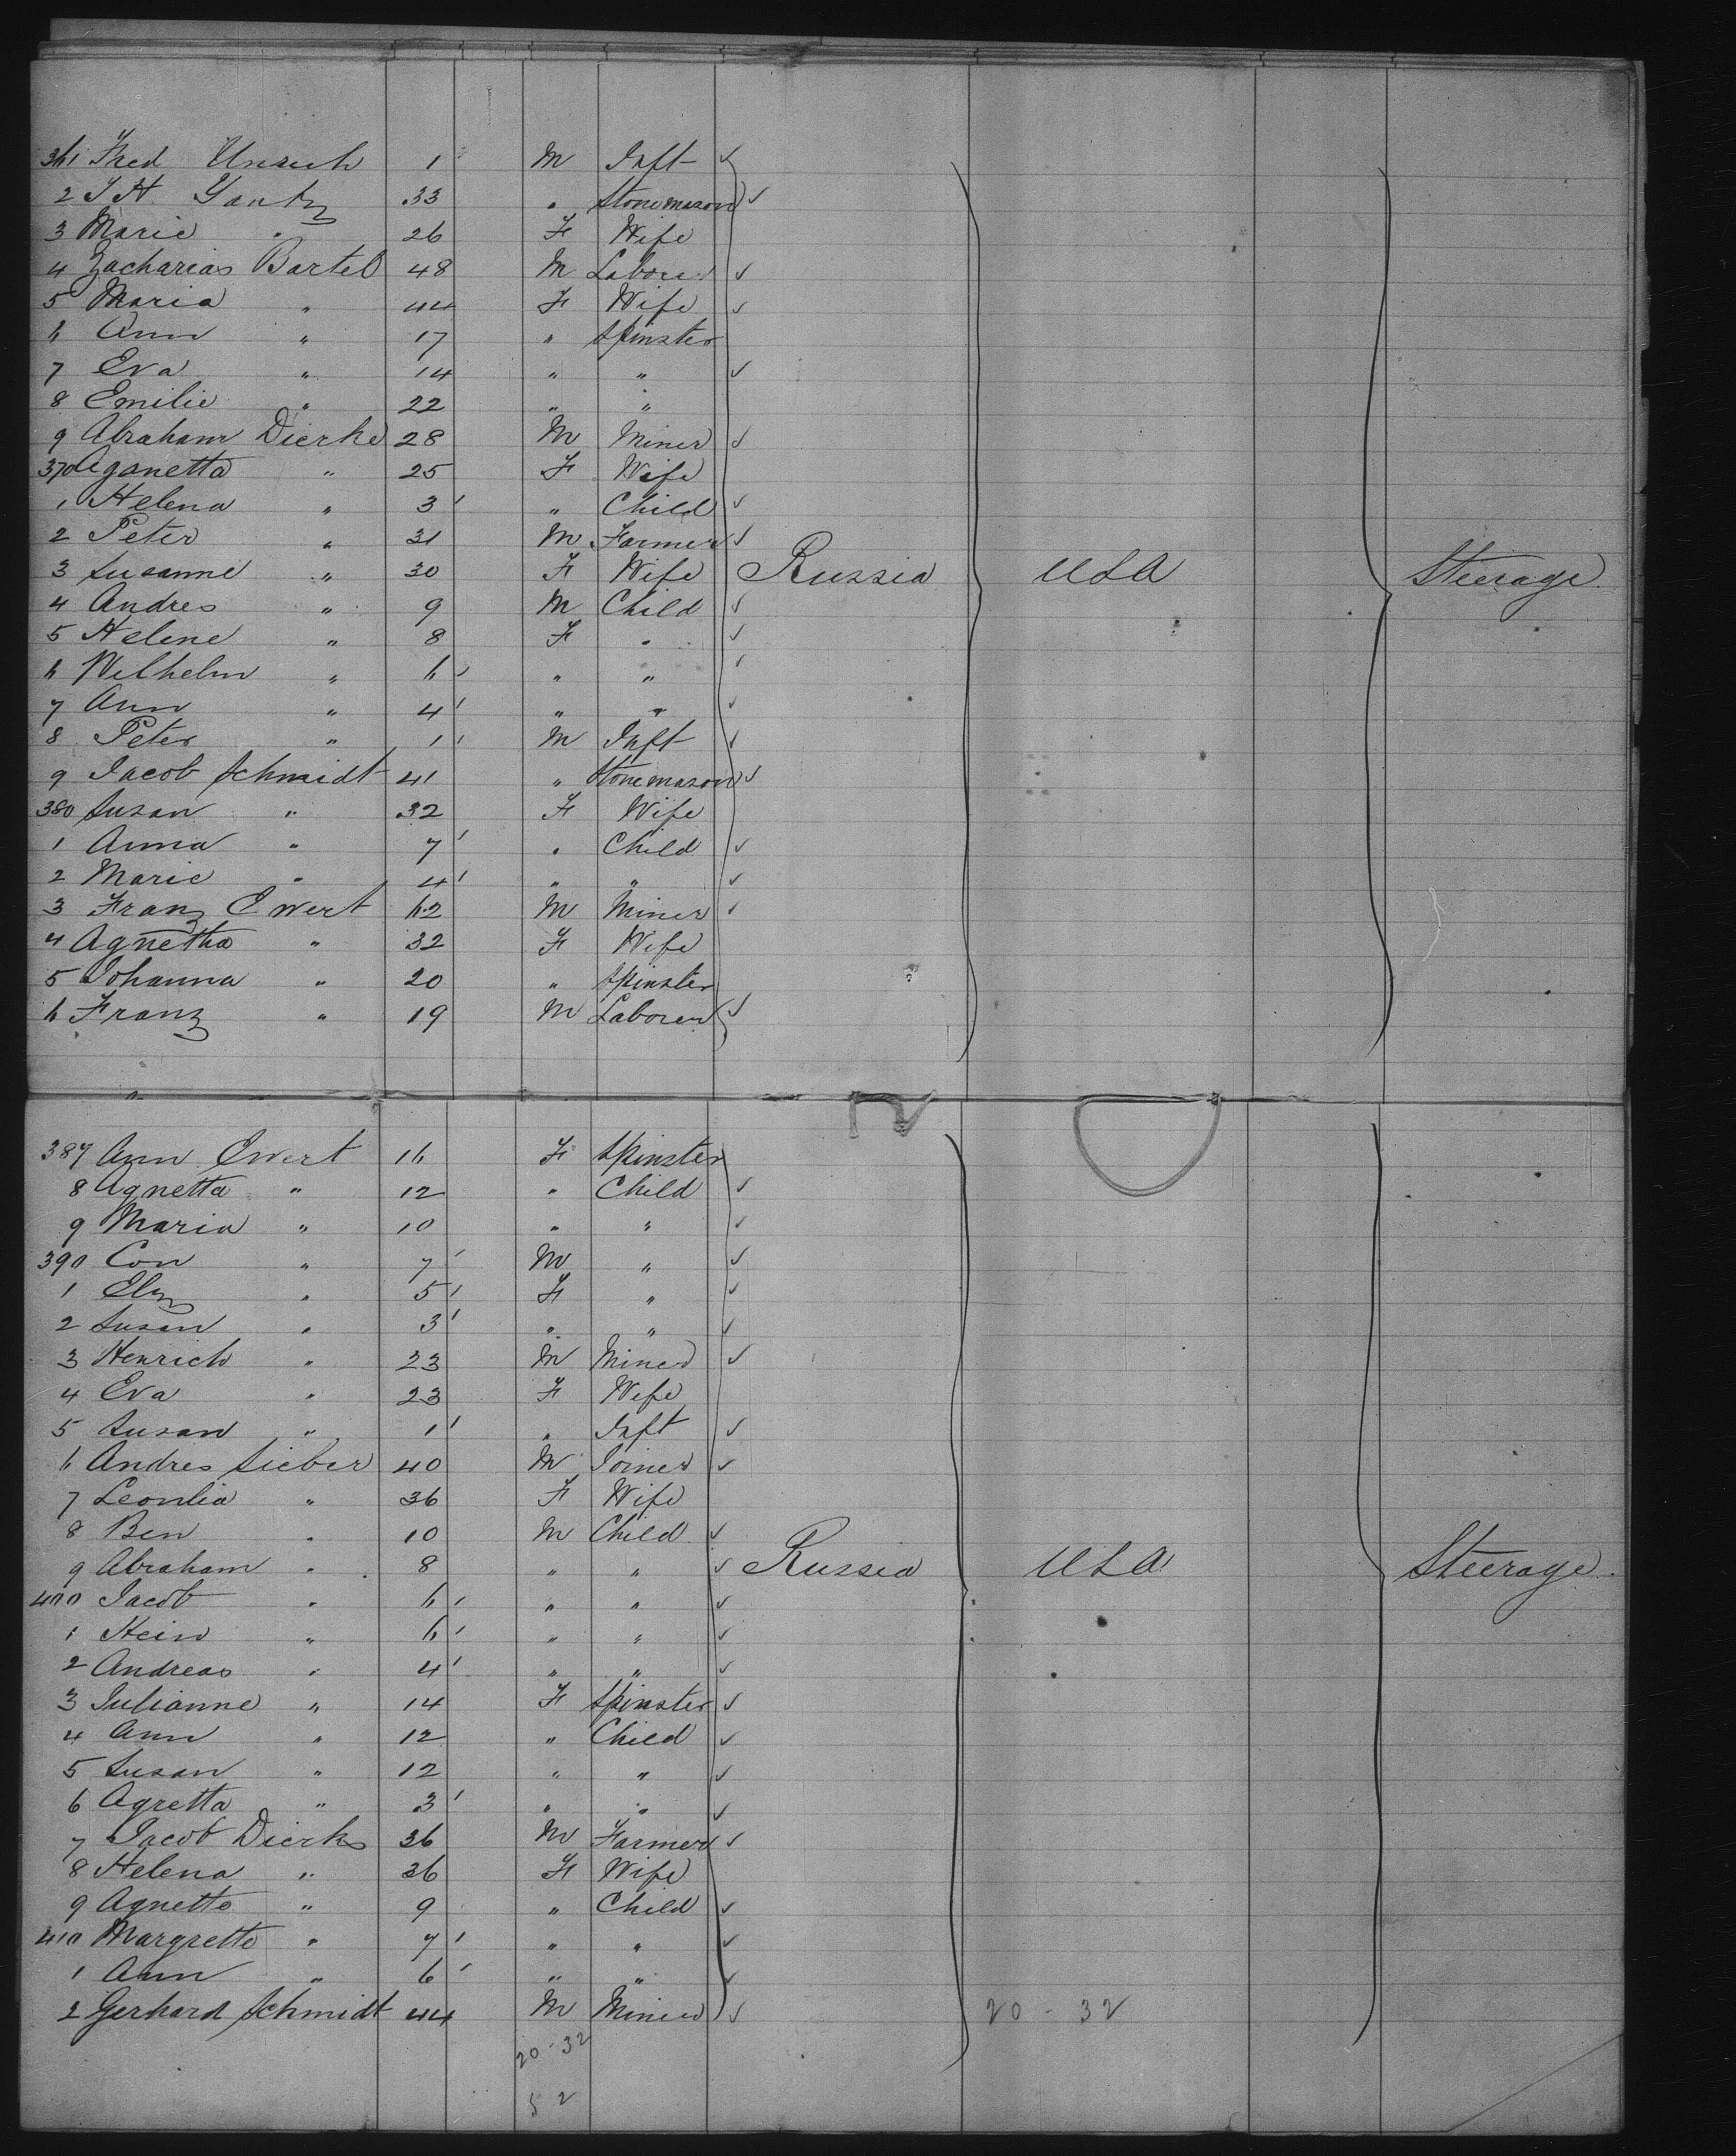 361 Fred Unruh 1 M Inft
2 J H Gantz 33 " Stonemason
3 Marie " 26 F Wife
4 Zacharias Bartel 48 M Laborer
5 Maria " 44 F Wife
6 Ann " 17 " Spinster
7 Eva " 14 " "
8 Emilie " 22 " "
9 Abraham Dierks 28 M Miner
370 Aganetta " 25 F Wife
1 Helena " 3 " Child
2 Peter " 31 M Farmer
3 Susanne " 30 F Wife Russia USA Steerage
4 Andres " 9 M Child
5 Helene " 8 F "
6 Wilhelm " 6 " "
7 Ann " 4 " "
8 Peter " 1 M Inft
9 Jacob Schmidt 41 " Stonemason
380 Susan " 32 F Wife
1 Anna " 7 " Child
2 Marie " 4 " "
3 Franz Ewert 62 M Miner
4 Agnetha " 32 F Wife
5 Johanna " 20 " Spinster
6 Franz " 19 M Laborer
387 Ann Ewert 16 F Spinster
8 Agnetta " 12 " Child
9 Maria " 10 " "
390 Con " 7 M "
1 Elz " 5 F "
2 Susan " 3 " "
3 Henrich " 23 M Miner
4 Eva " 23 F Wife
5 Susan " 1 " Inft
6 Andres Sieber 40 M Joiner
7 Leontia " 36 F Wife
8 Ben " 10 M Child
9 Abraham " 8 " " Russia USA Steerage
400 Jacob " 6 " "
1 Hein " 6 " "
2 Andreas " 4 " "
3 Julianne " 14 F Spinster
4 Ann " 12 " Child
5 Susan " 12 " "
6 Agretta " 3 " "
7 Jacob Dierks 36 M Farmer
8 Helena " 36 F Wife
9 Agnette " 9 " Child
410 Margrette " 7 " "
1 Ann " 6 " "
2 Gerhard Schmidt 44 M Miner 20 - 32
20 - 32
52